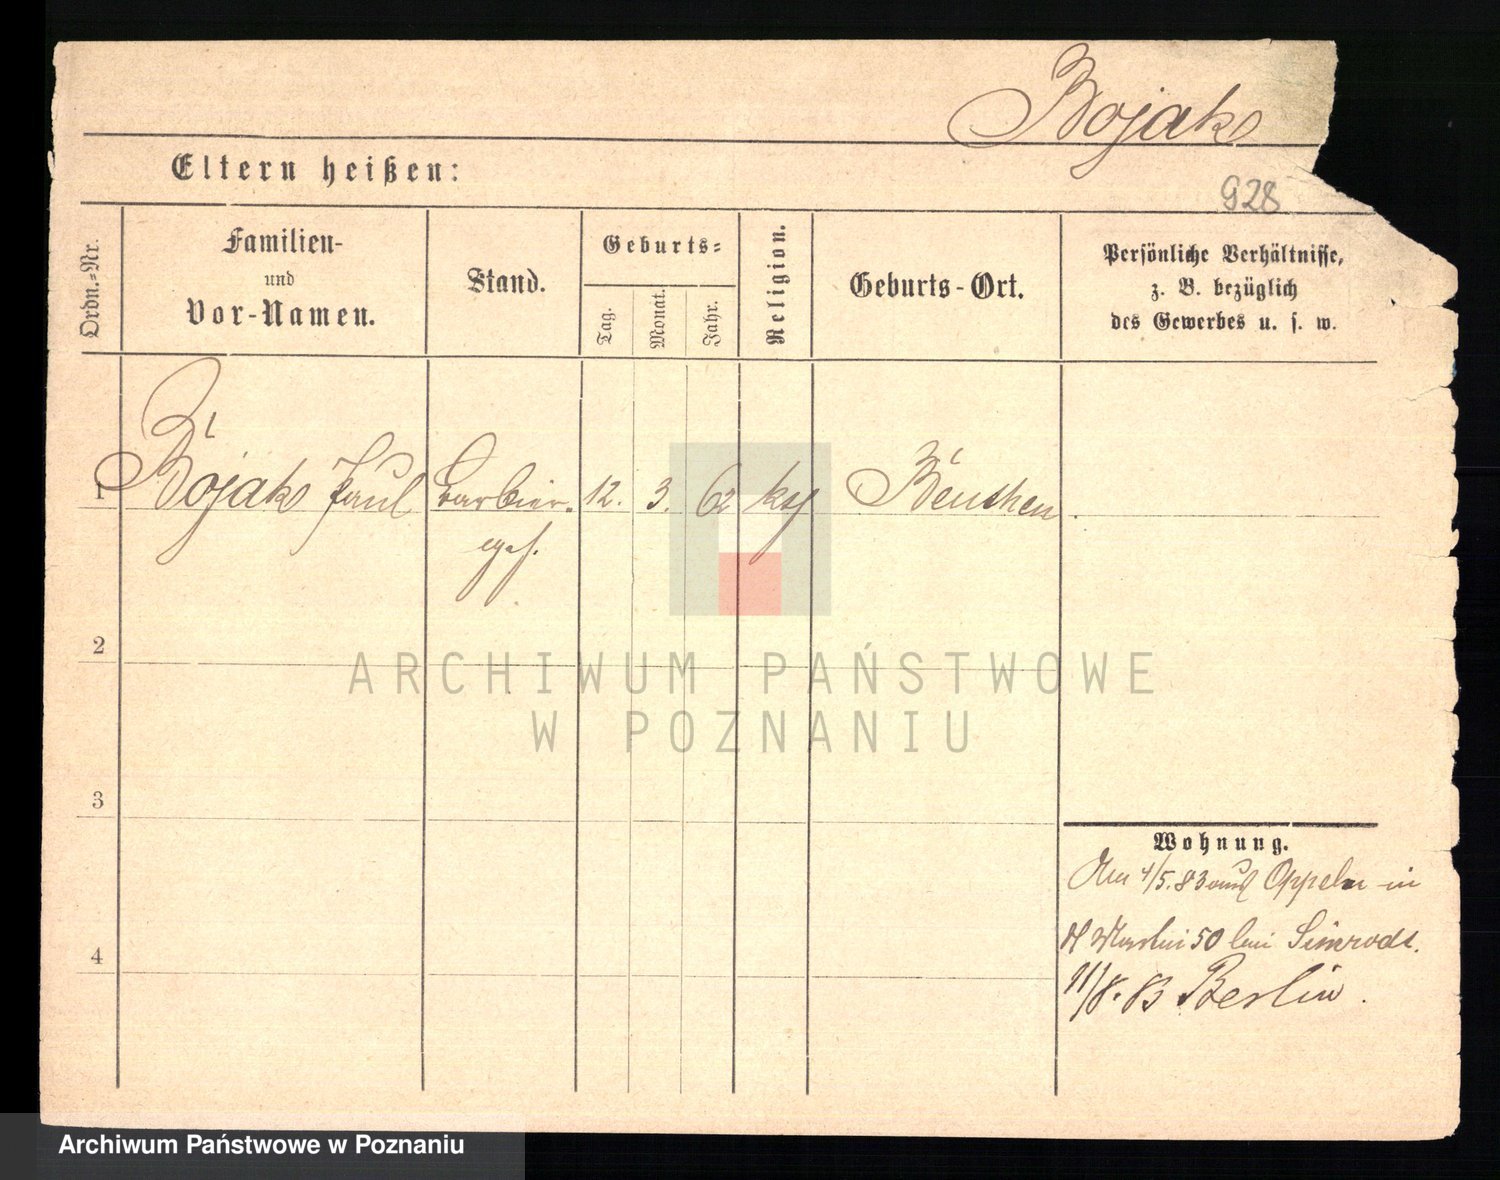 Bojak
Eltern heißen:
928
Ordn.-Nr.
Familien-
und
Vor-Namen.
Stand.
Geburts-
Tag.
Monat.
Jahr.
Religion.
Geburts-Ort.
Persönliche Verhältnisse,
z. B. bezüglich
des Gewerbes u. s. w.
1 Bojak Paul Barbier- 12. 3. 62 Beuthen
2
3
4
Wohnung.
4/5.83 aus Oppeln in
Martin 50 bei Simrodt.
11/8.83 Berlin.
ARCHIWUM PAŃSTWOWE
W POZNANIU
Archiwum Państwowe w Poznaniu